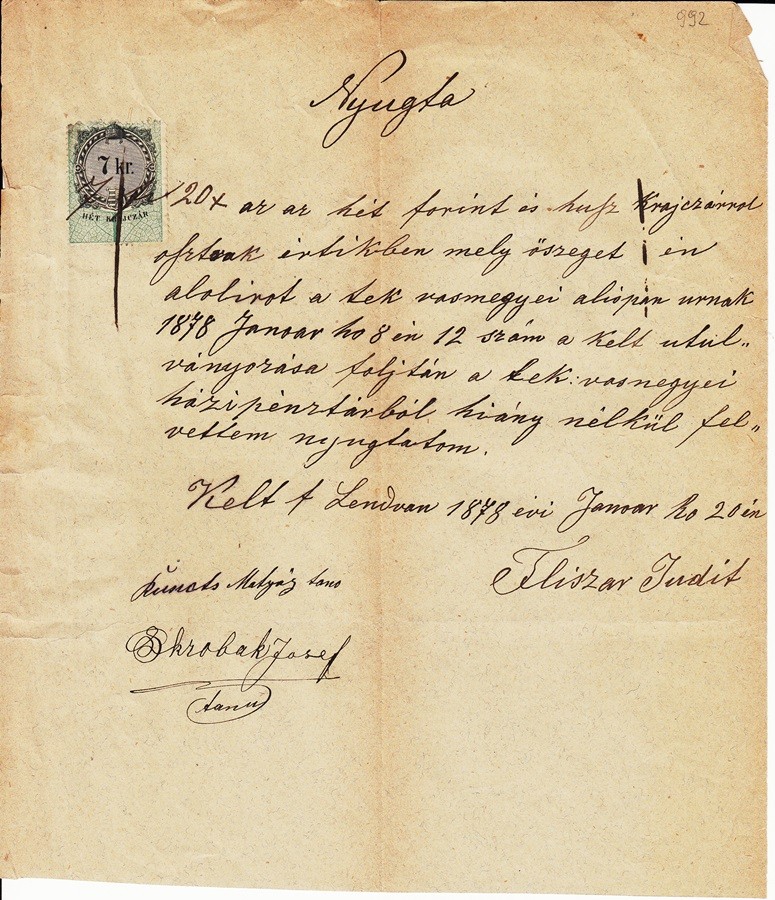 992
Nyugta
7 kr.
HÉT KRAJCZÁR
20x az az hét forint és husz Krajczárrol
osztrák értikben mely öszeget én
alolirot a tek vasmegyei alispán urnak
1878 Januar ho 8 én 12 szám a kelt utul„
ványozása foljtán a tek: vasnegyei
házipénztárból hiány nélkül fel„
vettem nyugtatom.
Kelt f Lendvan 1878 évi Januar ho 20 én
Fliszar Judit
Kunats Matyáz tano
Skrobak Josef
tanu